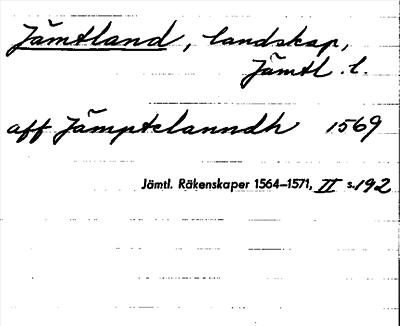 Jämtland, landskap,
Jämtl. l.
aff Jämptelanndh 1569
Jämtl. Räkenskaper 1564–1571, II s. 192